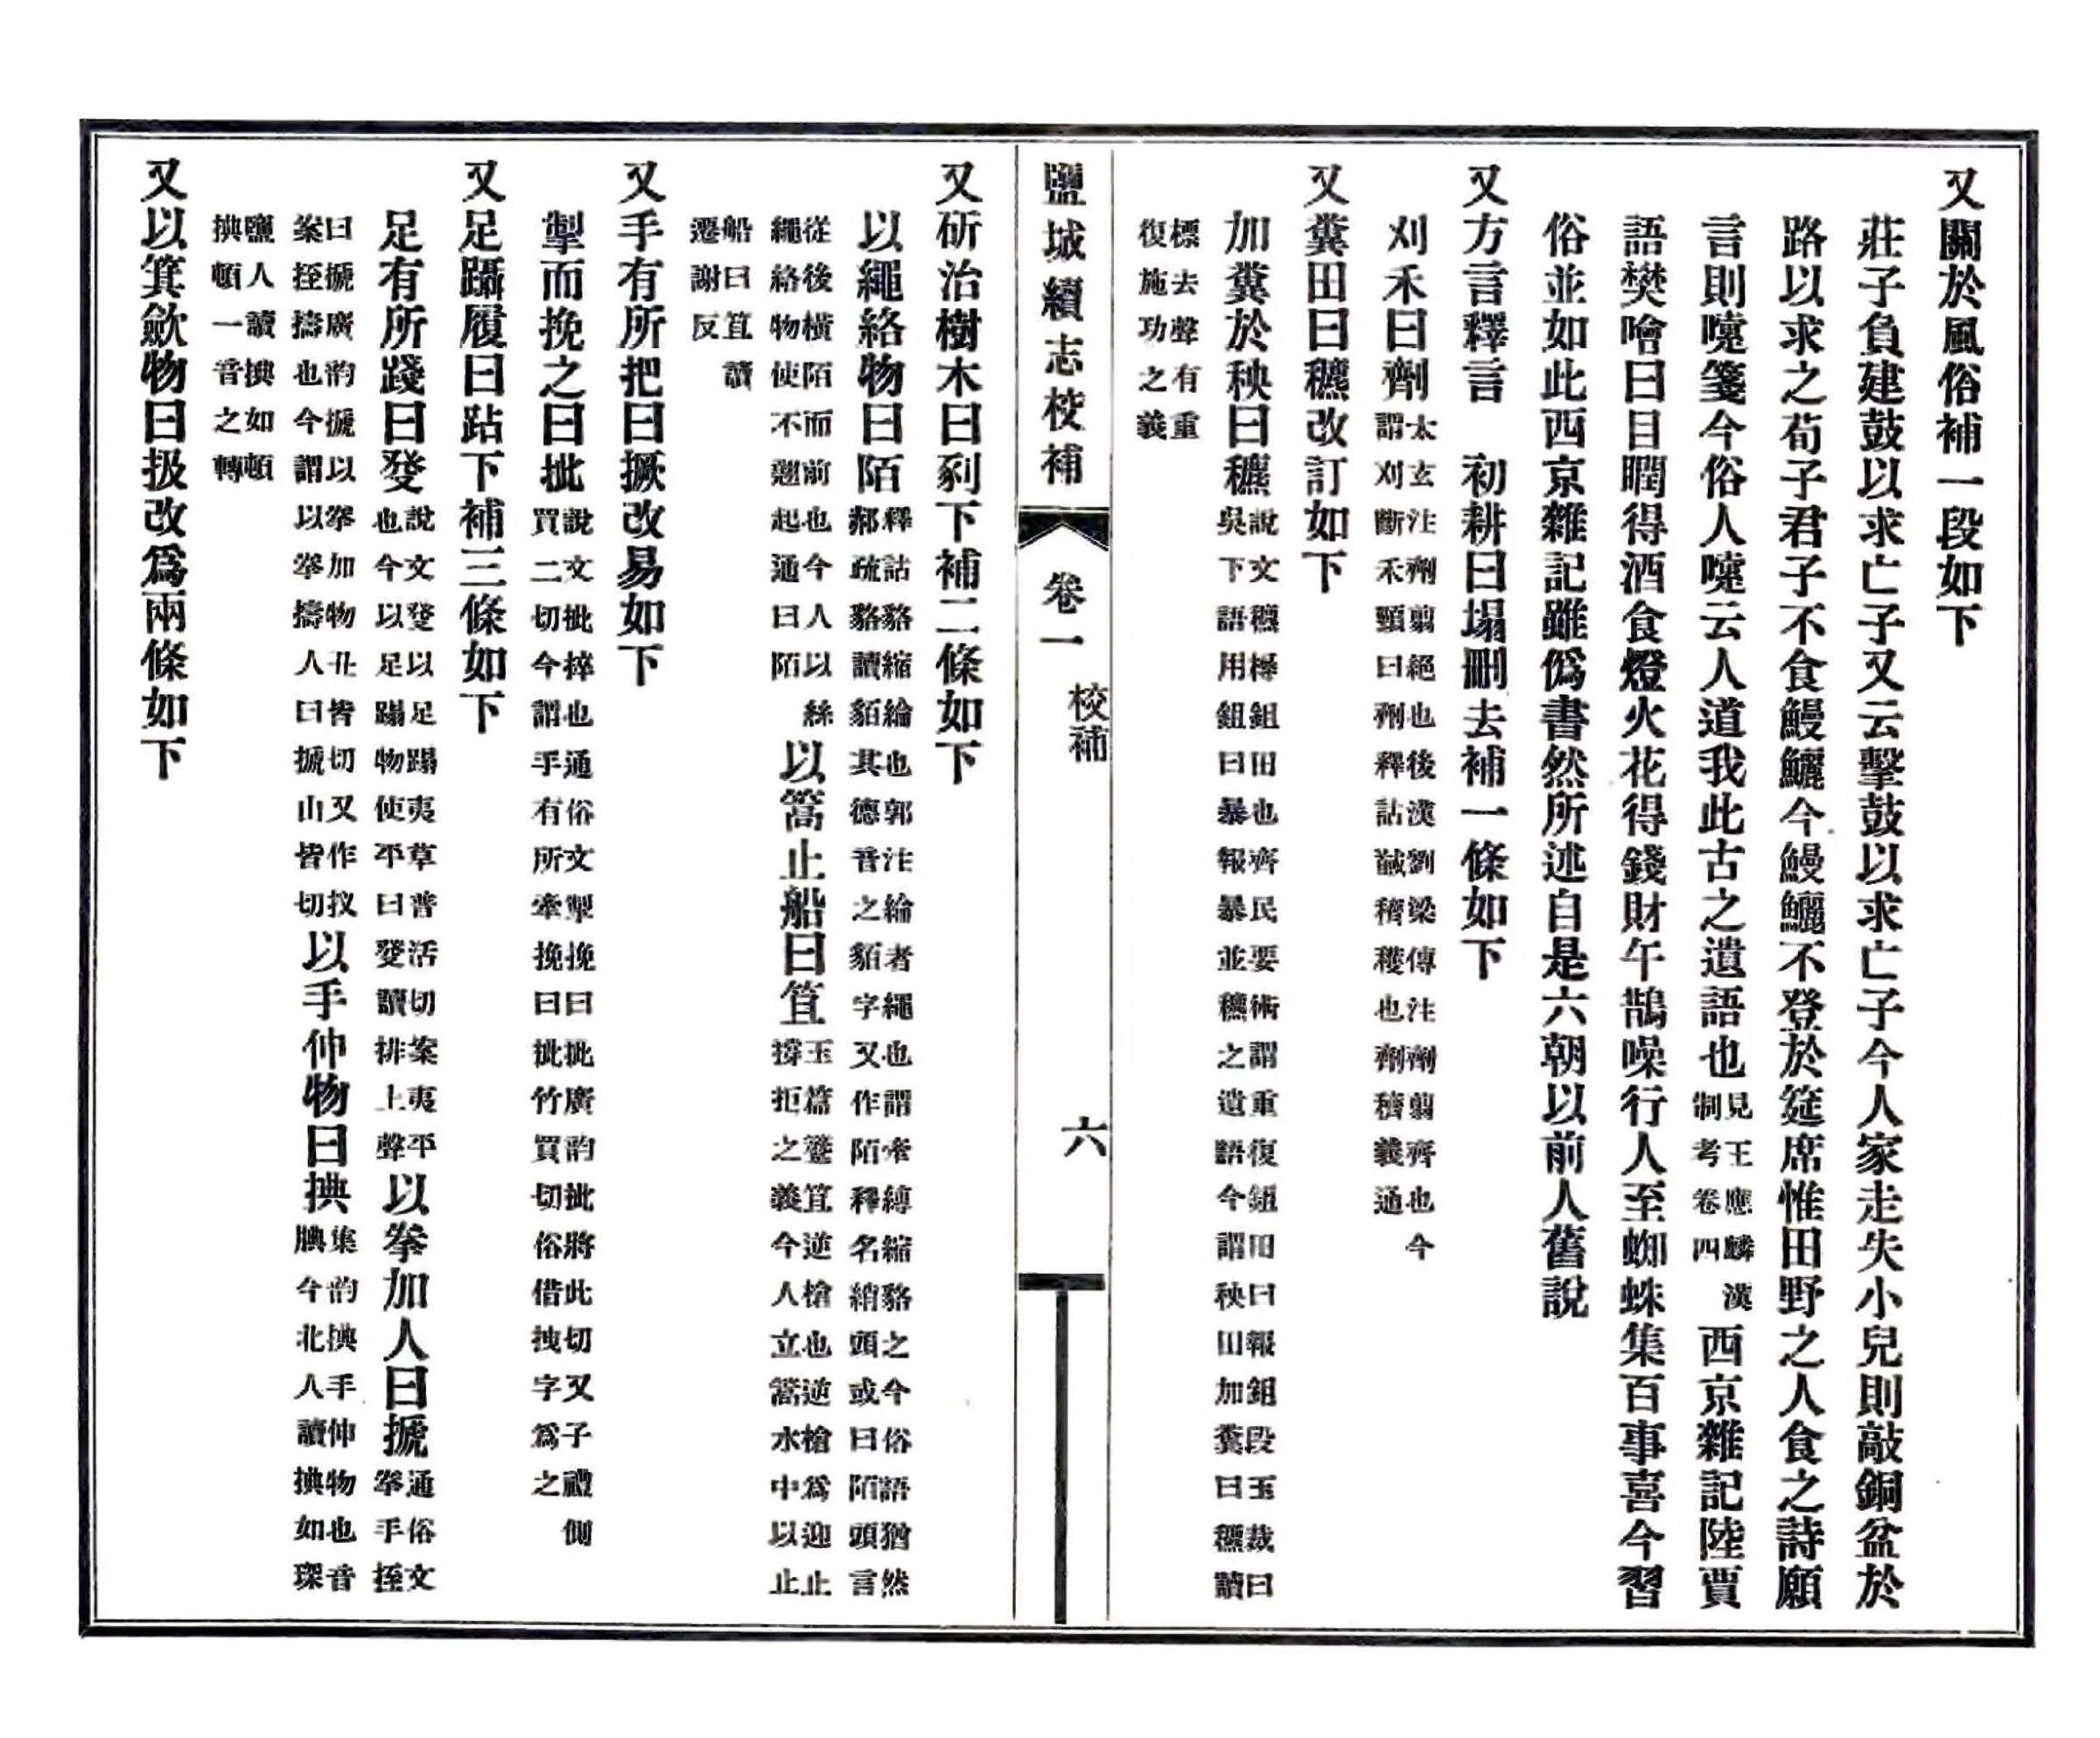 又關於風俗補一段如下
莊子負建鼓以求亡子又云擊鼓以求亡子今人家走失小兒則敲銅盆於
路以求之荀子君子不食鰻鱺今鰻鱺不登於筵席惟田野之人食之詩願
言則嚏箋今俗人嚏云人道我此古之遺語也見王應麟漢制考卷四西京雜記陸賈
語樊噲曰目瞤得酒食燈火花得錢財午鵲噪行人至蜘蛛集百事喜今習
俗並如此西京雜記雖僞書然所述自是六朝以前人舊說
又方言釋言　初耕曰塌刪去補一條如下
刈禾曰劑太玄注劑翦絕也後漢劉梁傳注劑翦齊也今謂刈斷禾頸曰劑釋詁馘穧穫也劑穧義通
又糞田曰穮改訂如下
加糞於秧曰穮說文穮槈鉏田也齊民要術謂重復鉏田曰報鉏段玉裁曰吳下語用鉏曰暴報暴並穮之遺語今謂秧田加糞曰穮讀
標去聲有重復施功之義
鹽城續志校補　卷一　校補　六
又斫治樹木曰剢下補二條如下
以繩絡物曰陌釋詁貉縮綸也郭注綸者繩也謂牽縛縮貉之今俗語猶然郝疏貉讀貊其德音之貊字又作陌釋名綃頭或曰陌頭言
從後橫陌而前也今人以絲繩絡物使不翹起通曰陌以篙止船曰笡玉篇籧笡逆槍也逆槍爲迎止撐拒之義今人立篙水中以止
船曰笡讀遷謝反
又手有所把曰撅改易如下
掣而挽之曰批說文批捽也通俗文掣挽曰批廣韵批將此切又子禮側買二切今謂手有所牽挽曰批竹買切俗借拽字爲之
又足躡履曰跕下補三條如下
足有所踐曰癹說文癹以足蹋夷草普活切案夷平也今以足蹋物使平曰癹讀排上聲以拳加人曰搋通俗文拳手挃
曰搋廣韵搋以拳加物丑皆切又作扠案挃擣也今謂以拳擣人曰搋山皆切以手伸物曰捵集韵捵手伸物也音腆今北人讀捵如琛
鹽人讀捵如頓捵頓一音之轉
又以箕歛物曰扱改爲兩條如下